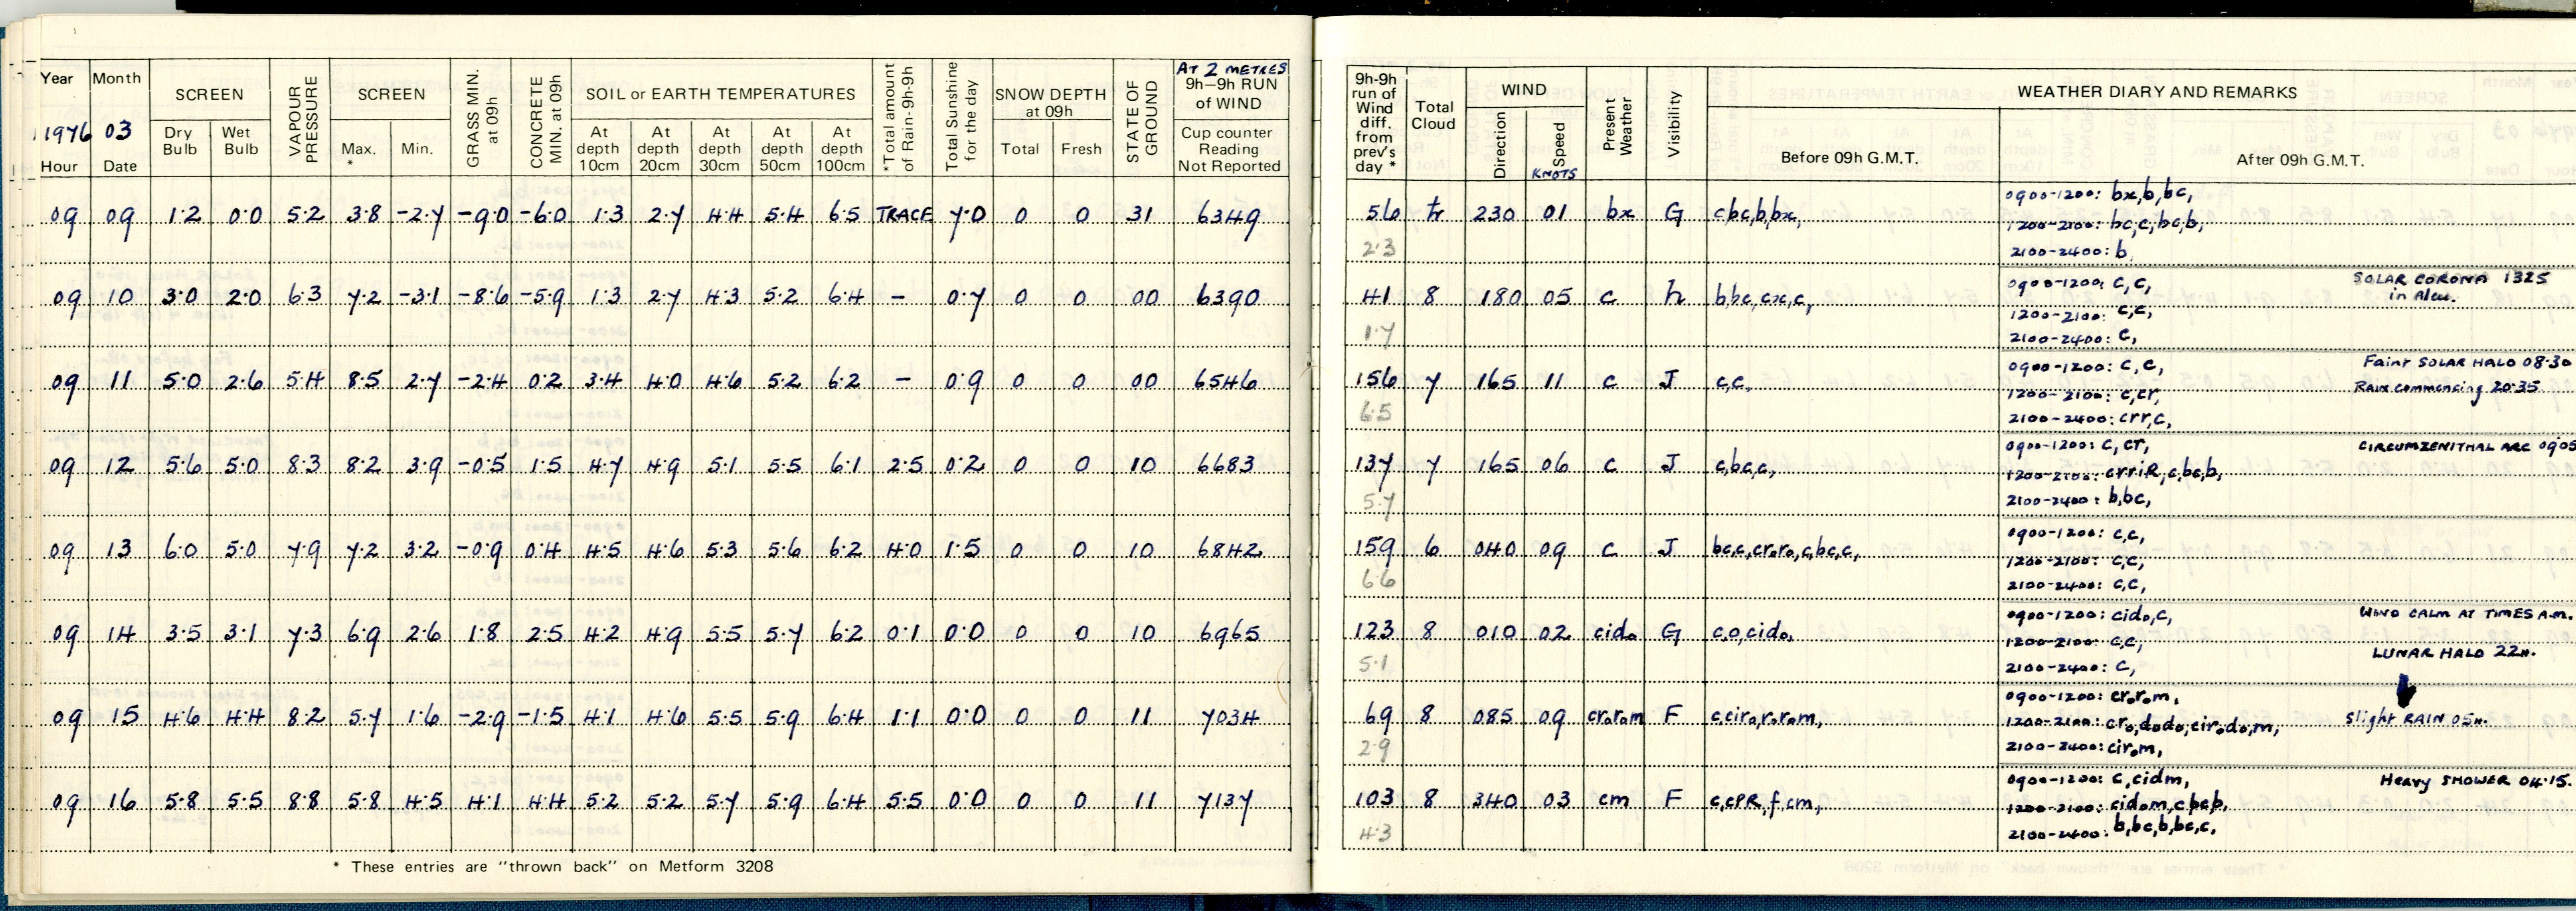 Year Month SCREEN VAPOUR PRESSURE SCREEN GRASS MIN. at 09h CONCRETE MIN. at 09h SOIL or EARTH TEMPERATURES *Total amount of Rain-9h-9h Total Sunshine for the day SNOW DEPTH at 09h STATE OF GROUND AT 2 METRES 9h–9h RUN of WIND
1976 03
Hour Date Dry Bulb Wet Bulb Max. * Min. At depth 10cm At depth 20cm At depth 30cm At depth 50cm At depth 100cm Total Fresh Cup counter Reading Not Reported
09 09 1.2 0.0 5.2 3.8 -2.7 -9.0 -6.0 1.3 2.7 4.4 5.4 6.5 TRACE 7.0 0 0 31 6349
09 10 3.0 2.0 6.3 7.2 -3.1 -8.6 -5.9 1.3 2.7 4.3 5.2 6.4 - 0.7 0 0 00 6390
09 11 5.0 2.6 5.4 8.5 2.7 -2.4 0.2 3.4 4.0 4.6 5.2 6.2 - 0.9 0 0 00 6546
09 12 5.6 5.0 8.3 8.2 3.9 -0.5 1.5 4.7 4.9 5.1 5.5 6.1 2.5 0.2 0 0 10 6683
09 13 6.0 5.0 7.9 7.2 3.2 -0.9 0.4 4.5 4.6 5.3 5.6 6.2 4.0 1.5 0 0 10 6842
09 14 3.5 3.1 7.3 6.9 2.6 1.8 2.5 4.2 4.9 5.5 5.7 6.2 0.1 0.0 0 0 10 6965
09 15 4.6 4.4 8.2 5.7 1.6 -2.9 -1.5 4.1 4.6 5.5 5.9 6.4 1.1 0.0 0 0 11 7034
09 16 5.8 5.5 8.8 5.8 4.5 4.1 4.4 5.2 5.2 5.7 5.9 6.4 5.5 0.0 0 0 11 7137
* These entries are "thrown back" on Metform 3208
9h-9h run of Wind diff. from prev's day * Total Cloud WIND Present Weather Visibility WEATHER DIARY AND REMARKS
Direction Speed KNOTS Before 09h G.M.T. After 09h G.M.T.
56 tr 230 01 bx G cbc,b,bx,
2.3
0900-1200: bx,b,bc,
1200-2100: bc,c,bc,b,
2100-2400: b,
41 8 180 05 c h bbc,cx,c,
1.7
0900-1200, c,c,
1200-2100: c,c,
2100-2400: c,
SOLAR CORONA 1325
in Alcu.
156 7 165 11 c J c,c,
6.5
0900-1200: c,c,
1200-2100: c,cr,
2100-2400: crr,c,
Faint SOLAR HALO 08.30
Rain commencing 20.35
137 7 165 06 c J c,bc,c,
5.7
0900-1200: c,cr,
1200-2100: crriR,c,bc,b,
2100-2400: b,bc,
CIRCUMZENITHAL ARC 0905
159 6 040 09 c J bc,c,croro,c,bc,c,
6.6
0900-1200: c,c,
1200-2100: c,c,
2100-2400: c,c,
123 8 010 02 cido G c,o,cido,
5.1
0900-1200: cido,c,
1200-2100: c,c,
2100-2400: c,
WIND CALM AT TIMES A.M.
LUNAR HALO 22H.
69 8 085 09 crorom F c,ciro,rorom,
2.9
0900-1200: crorom,
1200-2100: cro,dodo,cirodo,m,
2100-2400: cirom,
Slight RAIN 05H.
103 8 340 03 cm F c,cPR,f,cm,
4.3
0900-1200: c,cidm,
1200-2100: cidom,cbcb,
2100-2400: b,bc,b,bc,c,
Heavy SHOWER 04.15.